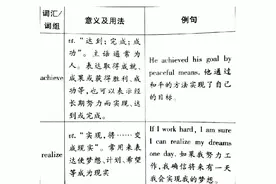 词汇/
词组
意义及用法
例句
achieve
vt. "达到;完成;成
功"。主语通常为
人。表达取得成就、
成果或获得胜利、成
功等,也可以表示经
长期努力而实现、达
到或完成。
He achieved his goal by
peaceful means. 他通过
和平的方法实现了自己
的目标。
realize
vt. "实现,将……变
成现实"。常用来表
达使梦想、计划、希望
等成为现实
If I work hard, I am sure
I can realize my dreams
one day. 如果我努力工
作,我确信将来有一天
我会实现我的梦想。